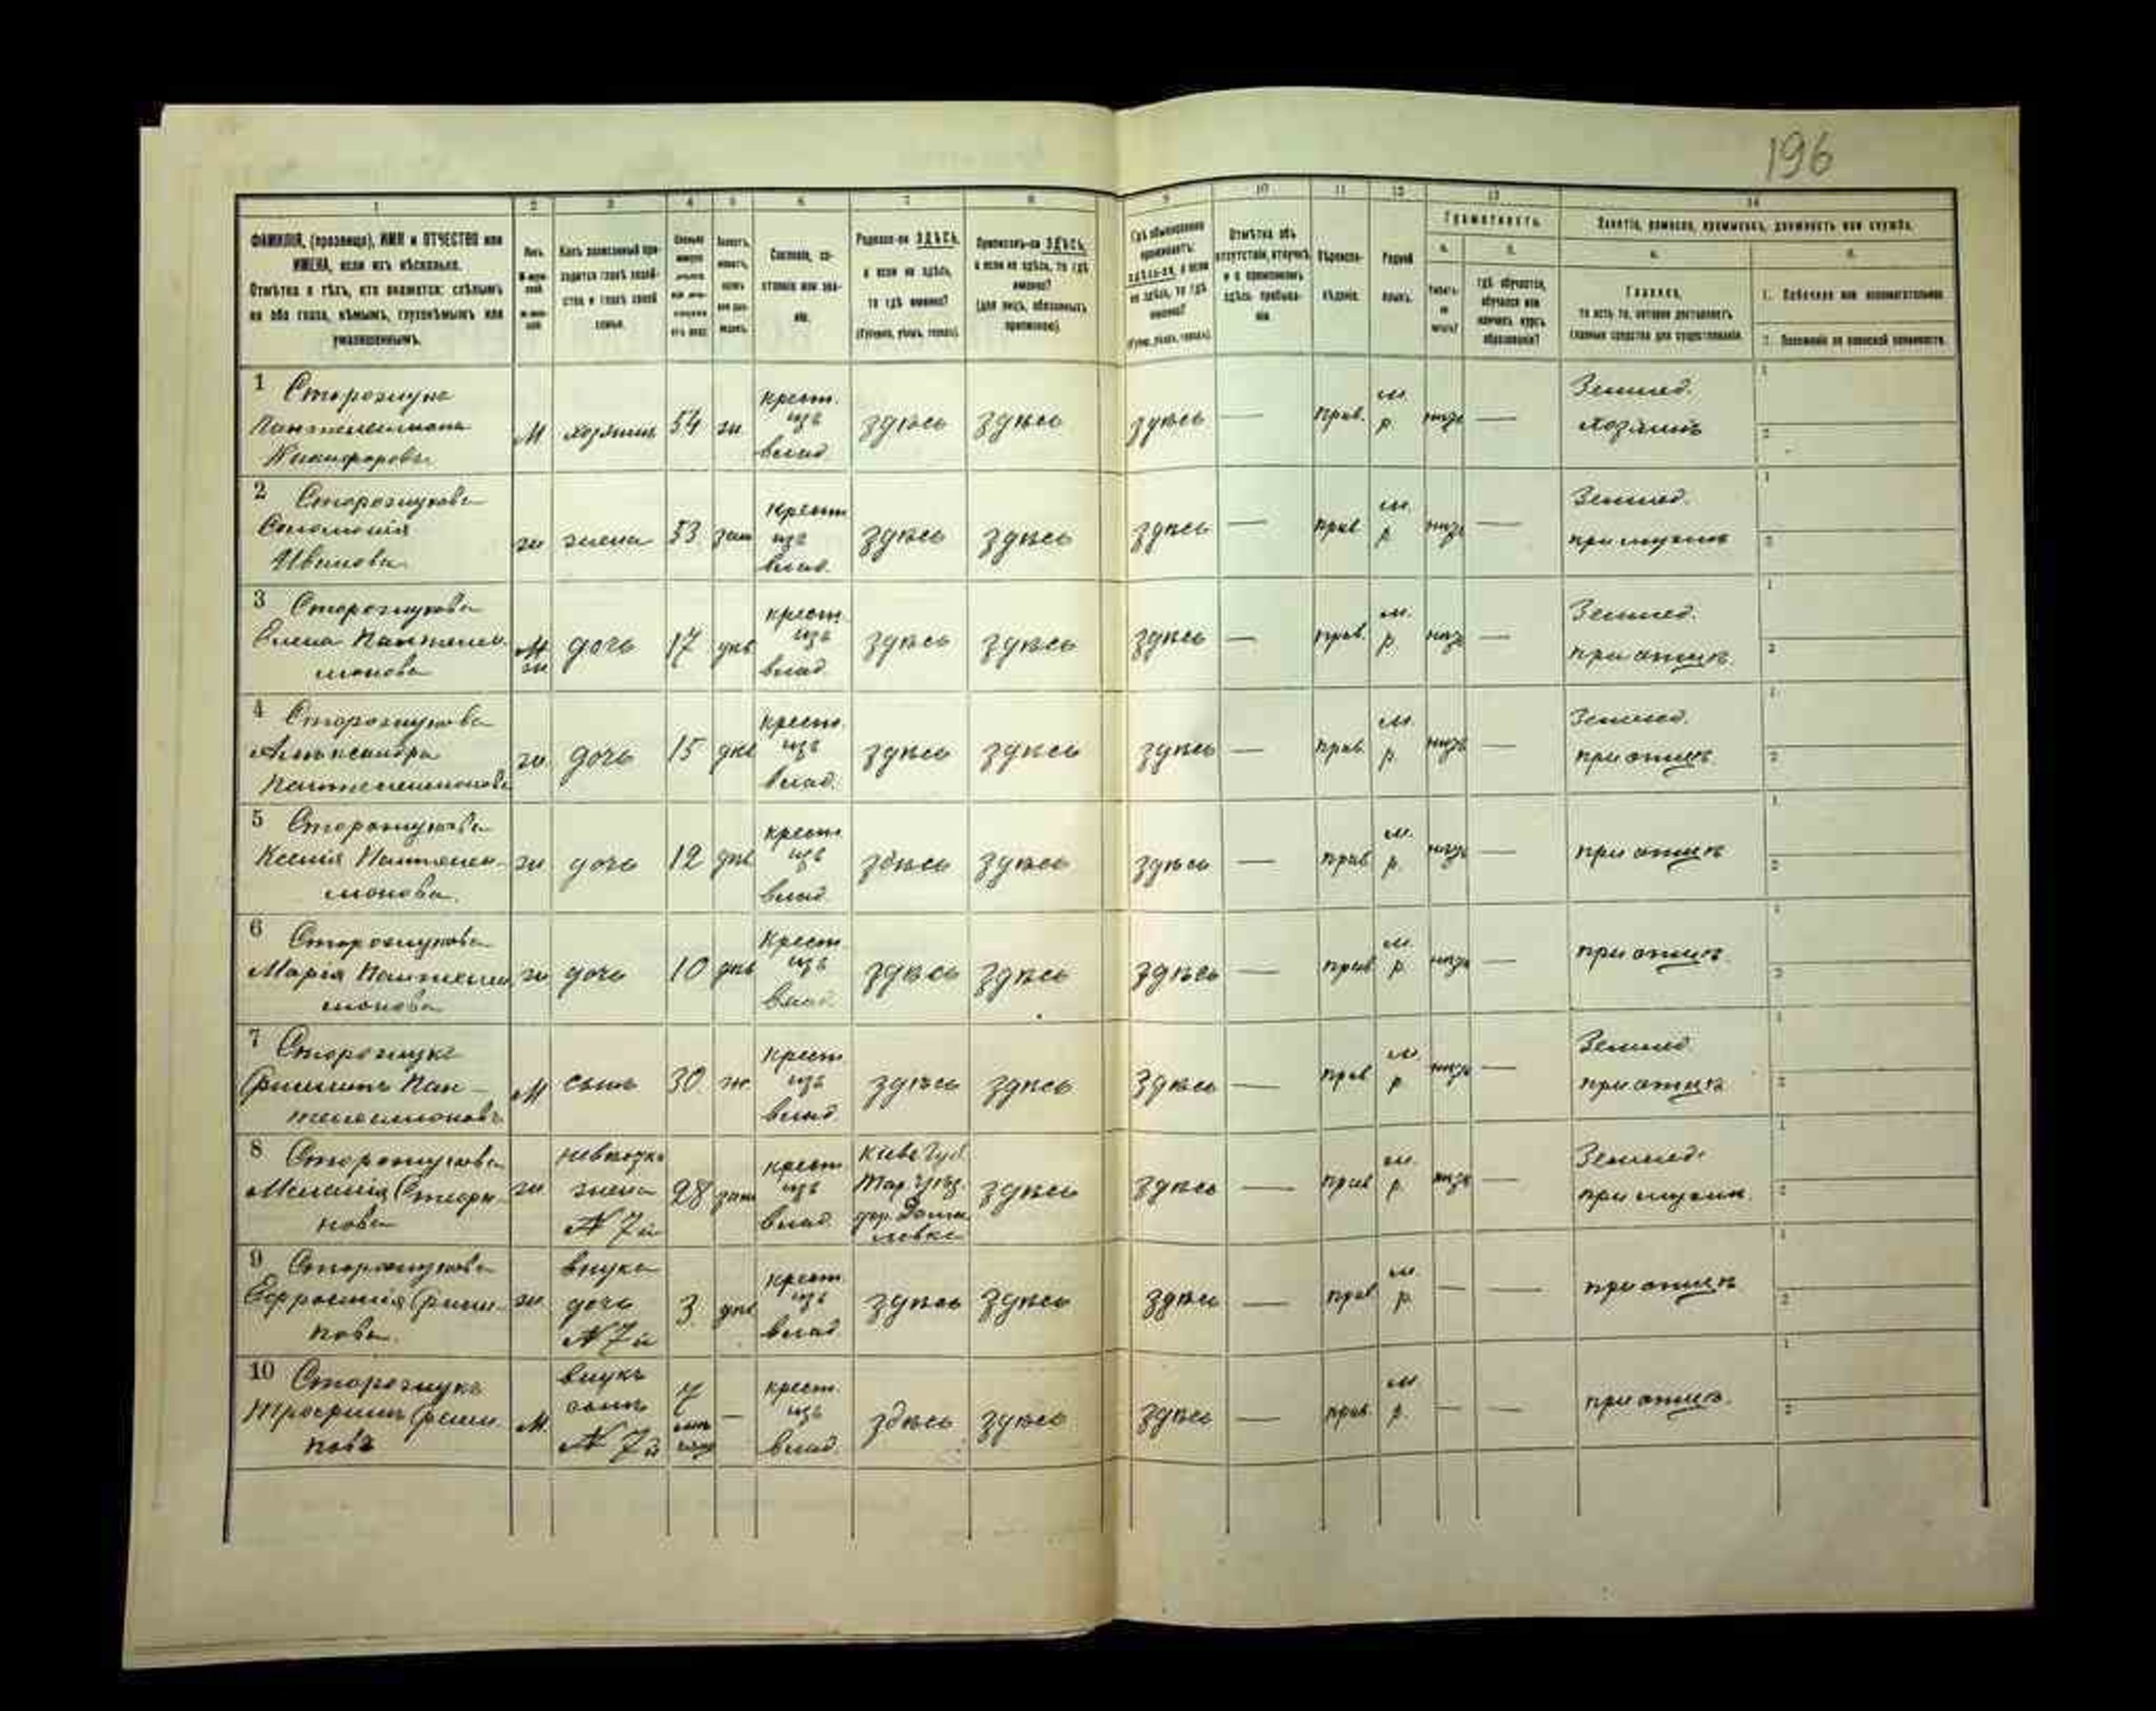 196
1 2 3 4 5 6 7 8 9 10 11 12 13 14
ФАМИЛІЯ, (прозвище), ИМЯ и ОТЧЕСТВО или
ИМЕНА, если ихъ нѣсколько.
Отмѣтка о тѣхъ, кто окажется: слѣпымъ
на оба глаза, нѣмымъ, глухонѣмымъ или
умалишеннымъ.
Полъ.
Какъ записанный при-
ходится главѣ хозяй-
ства и главѣ своей
семьи.
Сословіе, со-
стояніе или зва-
ніе.
Родился-ли ЗДѢСЬ,
а если не здѣсь,
то гдѣ именно?
(Губернія, уѣздъ, городъ).
Приписанъ-ли ЗДѢСЬ,
а если не здѣсь, то гдѣ
именно?
(для лицъ, обязанныхъ
припискою).
Гдѣ обыкновенно
проживаетъ:
здѣсь-ли, а если
не здѣсь, то гдѣ
именно?
(Губер., уѣздъ, городъ).
Отмѣтка объ
отсутствіи, отлучкѣ
и о временномъ
здѣсь пребыва-
ніи.
Вѣроиспо-
вѣданіе.
Родной
языкъ.
Грамотность.
а. б.
гдѣ обучается,
обучался или
кончилъ курсъ
образованія?
Занятіе, ремесло, промыселъ, должность или служба.
а. б.
Главное,
то есть то, которое доставляетъ
главныя средства для существованія.
1. Побочное или вспомогательное.
2. Положеніе по воинской повинности.
1 Сторожукъ
Пантелеимонъ
Никифоровъ
М хозяинъ 54 ж крест. изъ влад. здѣсь здѣсь здѣсь — прав. м. р. — Землед. хозяинъ
2 Сторожукова
Соломонія
Иванова
ж жена 53 зам крест изъ влад. здѣсь здѣсь здѣсь — прав м. р. — Землед. при мужѣ
3 Сторожукова
Елена Пантелеи-
монова
ж дочь 17 дѣв крест. изъ влад. здѣсь здѣсь здѣсь — прав. м. р. — Землед. при отцѣ
4 Сторожукова
Александра
Пантелеимонова
ж дочь 15 дѣв крест. изъ влад. здѣсь здѣсь здѣсь — прав. м. р. — Землед. при отцѣ
5 Сторожукова
Ксенія Пантелеи-
монова
ж дочь 12 дѣв крест. изъ влад. здѣсь здѣсь здѣсь — прав м. р. — при отцѣ
6 Сторожукова
Марія Пантелеи-
монова
ж дочь 10 дѣв Крест. изъ влад здѣсь здѣсь здѣсь — прав м. р. — при отцѣ
7 Сторожукъ
Филиппъ Пан-
телеимоновъ
М сынъ 30 ж. крест изъ влад здѣсь здѣсь здѣсь — прав м. р. — Землед. при отцѣ
8 Сторожукова
Меланія
ж невѣстка жена № 7й 28 зам крест изъ влад. Кіев. Губ. Тар. Уѣзд. здѣсь здѣсь — прав м. р. — Землед. при мужѣ
9 Сторожукова
Ефросинія Филип-
пова
ж внука дочь № 7й 3 дѣв крест. изъ влад здѣсь здѣсь здѣсь — прав м. р. — — при отцѣ
10 Сторожукъ
Трофимъ Филип-
повъ
М. внукъ сынъ № 7й 7 — крест. изъ влад. здѣсь здѣсь здѣсь — прав. м. р. — — при отцѣ